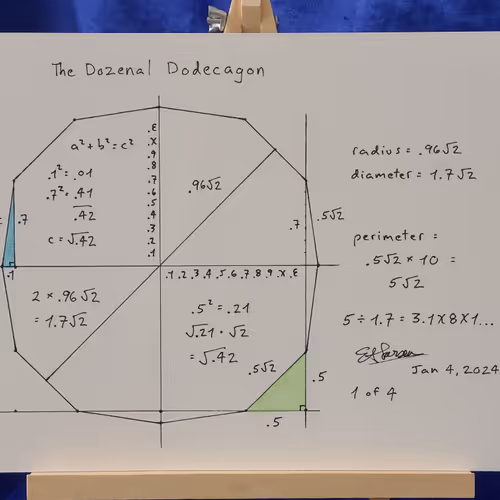 The Dozenal Dodecagon
a² + b² = c²
.1² = .01
.7² = .41
.42
c = √.42
.Ɛ
.X
.9
.8
.7
.6
.5
.4
.3
.2
.1
.96√2
.7
.5√2
.7
.1
.1 .2 .3 .4 .5 .6 .7 .8 .9 .X .Ɛ
2 × .96√2
= 1.7√2
.5² = .21
√.21 · √2
= √.42
.5√2
.5
.5
radius = .96√2
diameter = 1.7√2
perimeter =
.5√2 × 10 =
5√2
5 ÷ 1.7 = 3.1X8X1...
Jan 4, 2024
1 of 4